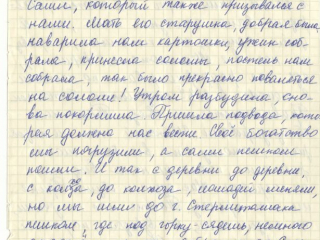 Сами, который также призывался с
нами. Мать его старушка, добрая была
наварила нам картошки, ужин соб-
рала, принесла соломы, постель нам
собрала, так было прекрасно поваляться
на соломе! Утром разбудила, сно-
ва покормила. Пришла подвода, кото-
рая должна нас везти. Своё богатство
мы погрузили, а сами пешком
пошли. И так с деревни до деревни,
с колхоза до колхоза, лошадей меняли,
но мы шли до г. Стерлитамака
пешком, где под горку сядешь, немного